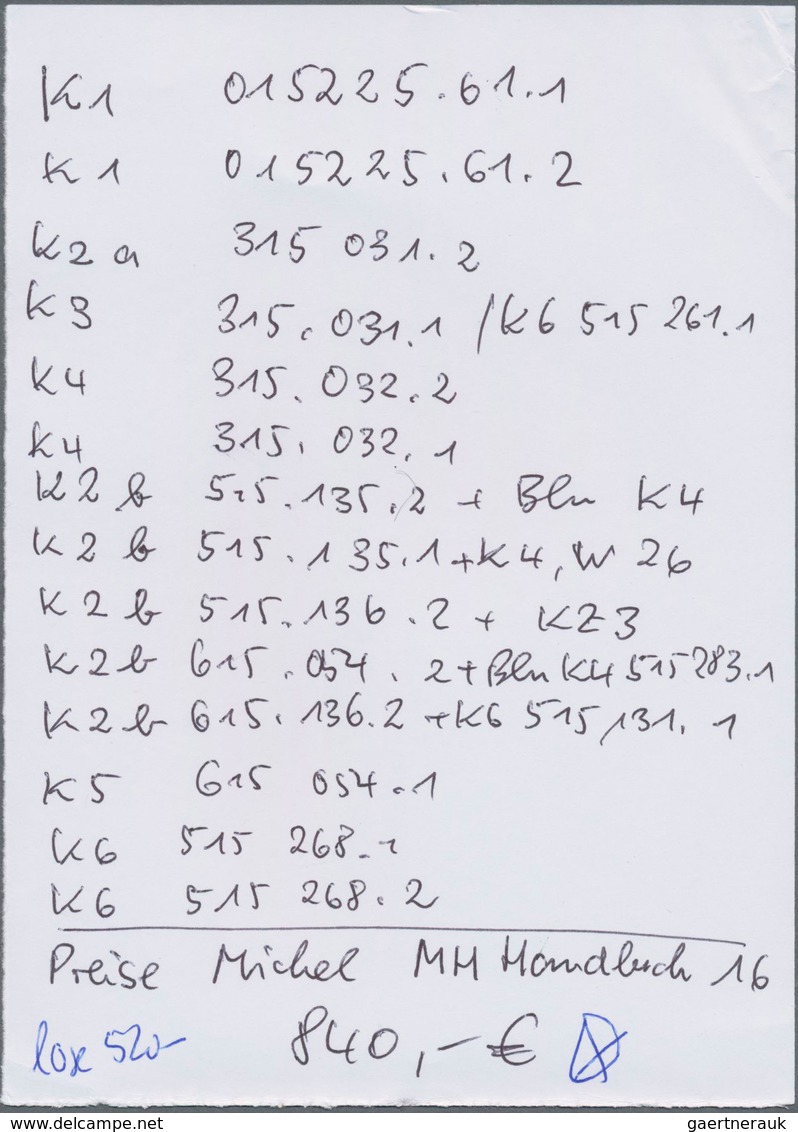 K1 015225.61.1
K1 015225.61.2
K2a 315 031.2
K3 315.031.1 /K6 515 261.1
K4 315.032.2
K4 315.032.1
K2b 515.135.2 + Bln K4
K2b 515.135.1+K4, W 26
K2b 515.136.2 + KZ3
K2b 615.054.2+Bln K4 515283.1
K2b 615.136.2 +K6 515,131.1
K5 615 054.1
K6 515 268.1
K6 515 268.2
Preise Michel MH Handbuch 16
lose 520- 840,-€
delcampe.net
gaertnerauk